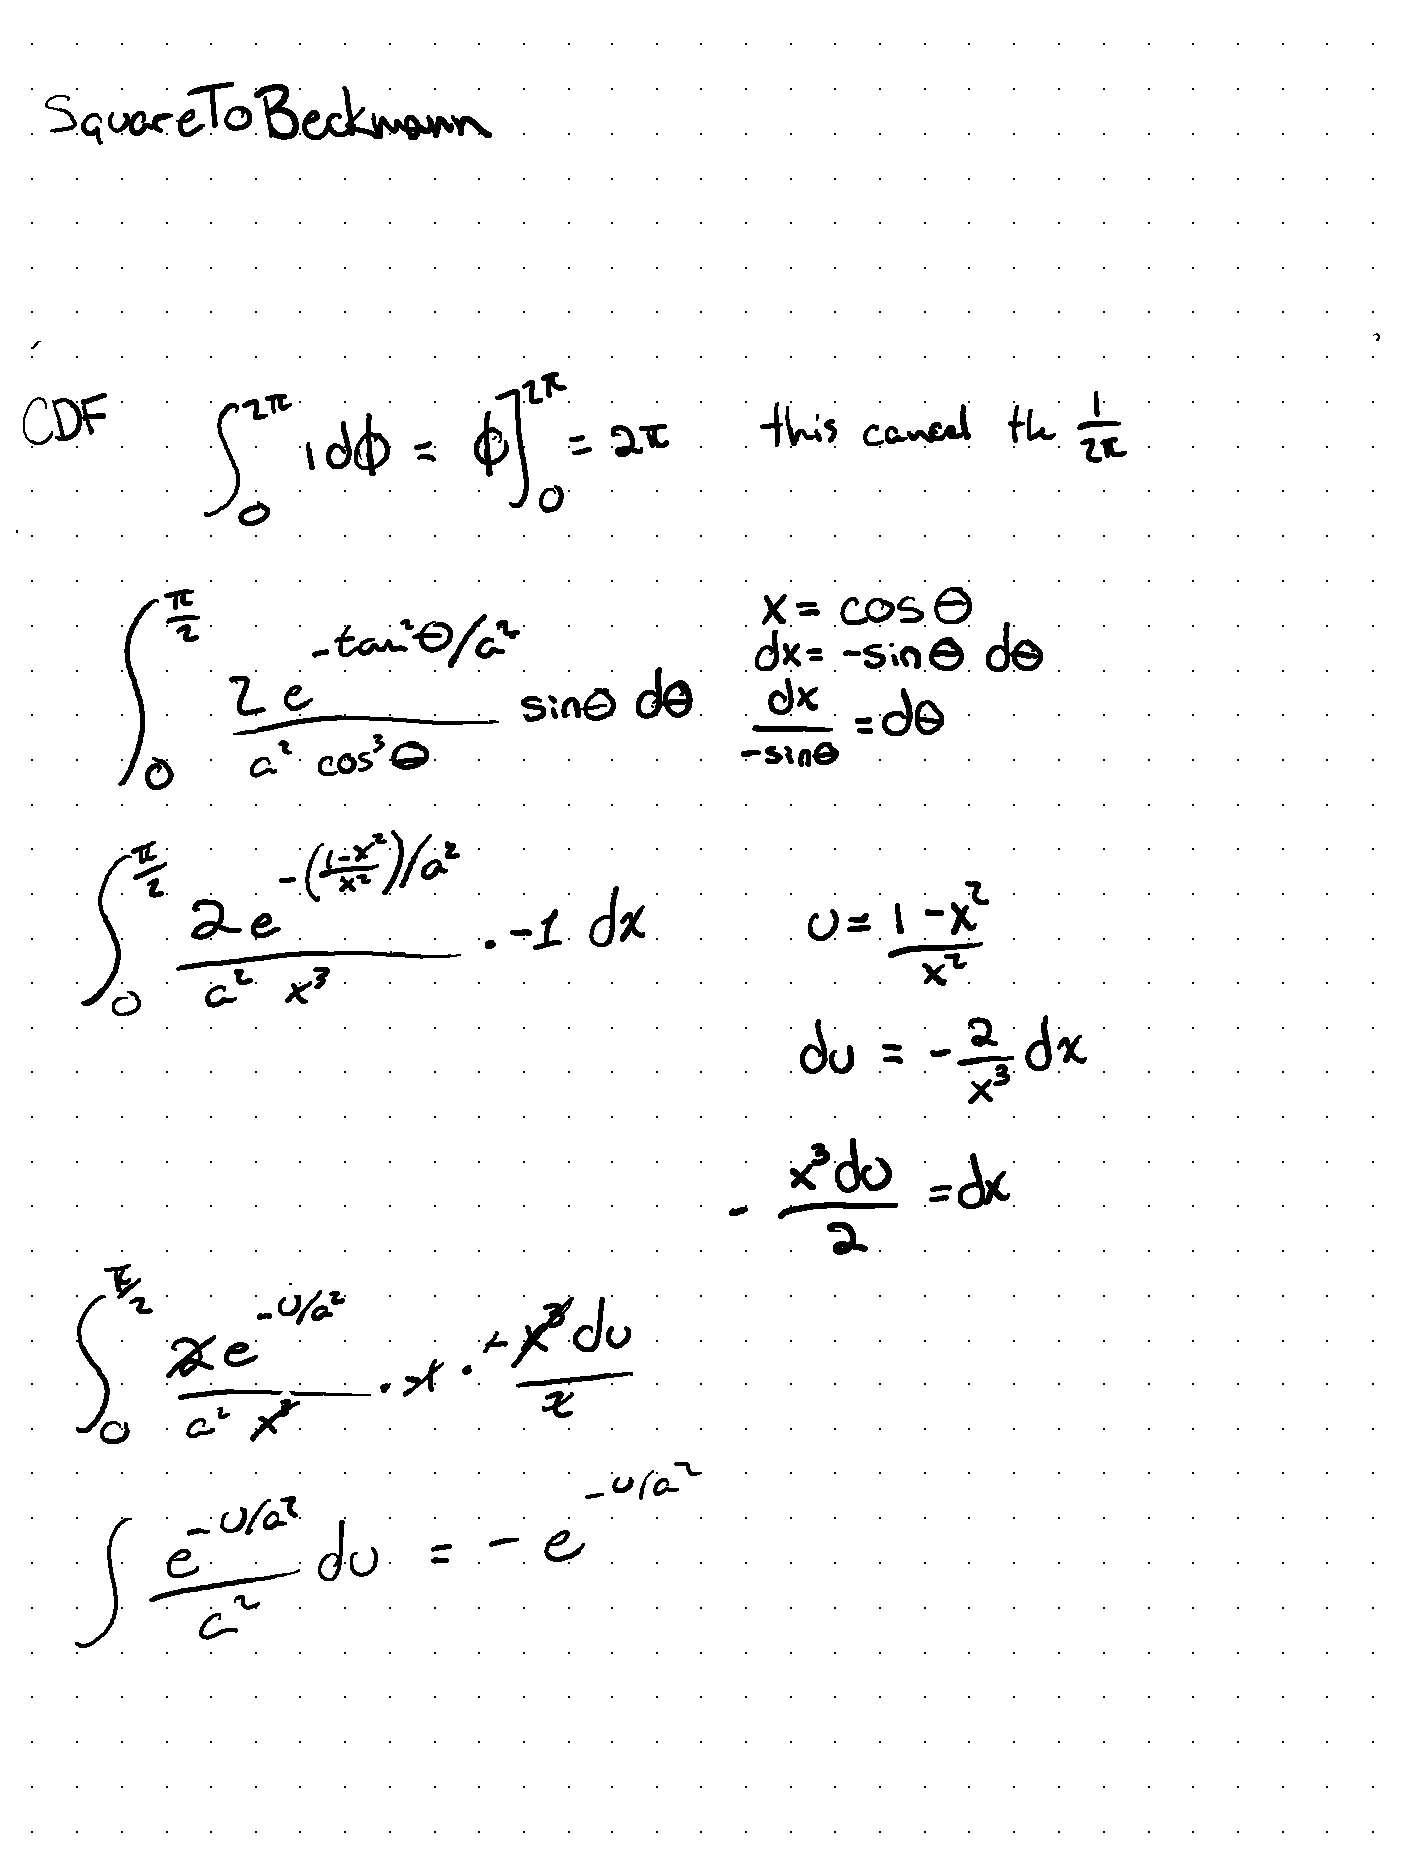 SquareToBeckmann
CDF ∫_0^{2π} 1 dϕ = ϕ]_0^{2π} = 2π this cancel th \frac{1}{2π}
x = cos θ
∫_0^{\frac{π}{2}} \frac{2e^{-tan²θ/a²}}{a² cos³θ} sinθ dθ dx = -sinθ dθ
\frac{dx}{-sinθ} = dθ
∫_0^{\frac{π}{2}} \frac{2e^{-(\frac{1-x²}{x²})/a²}}{a² x³} · -1 dx u = \frac{1-x²}{x²}
du = -\frac{2}{x³} dx
-\frac{x³du}{2} = dx
∫_0^{π/2} \frac{2e^{-u/a²}}{a² x³} · -1 · \frac{-x³du}{2}
∫ \frac{e^{-u/a²}}{a²} du = -e^{-u/a²}